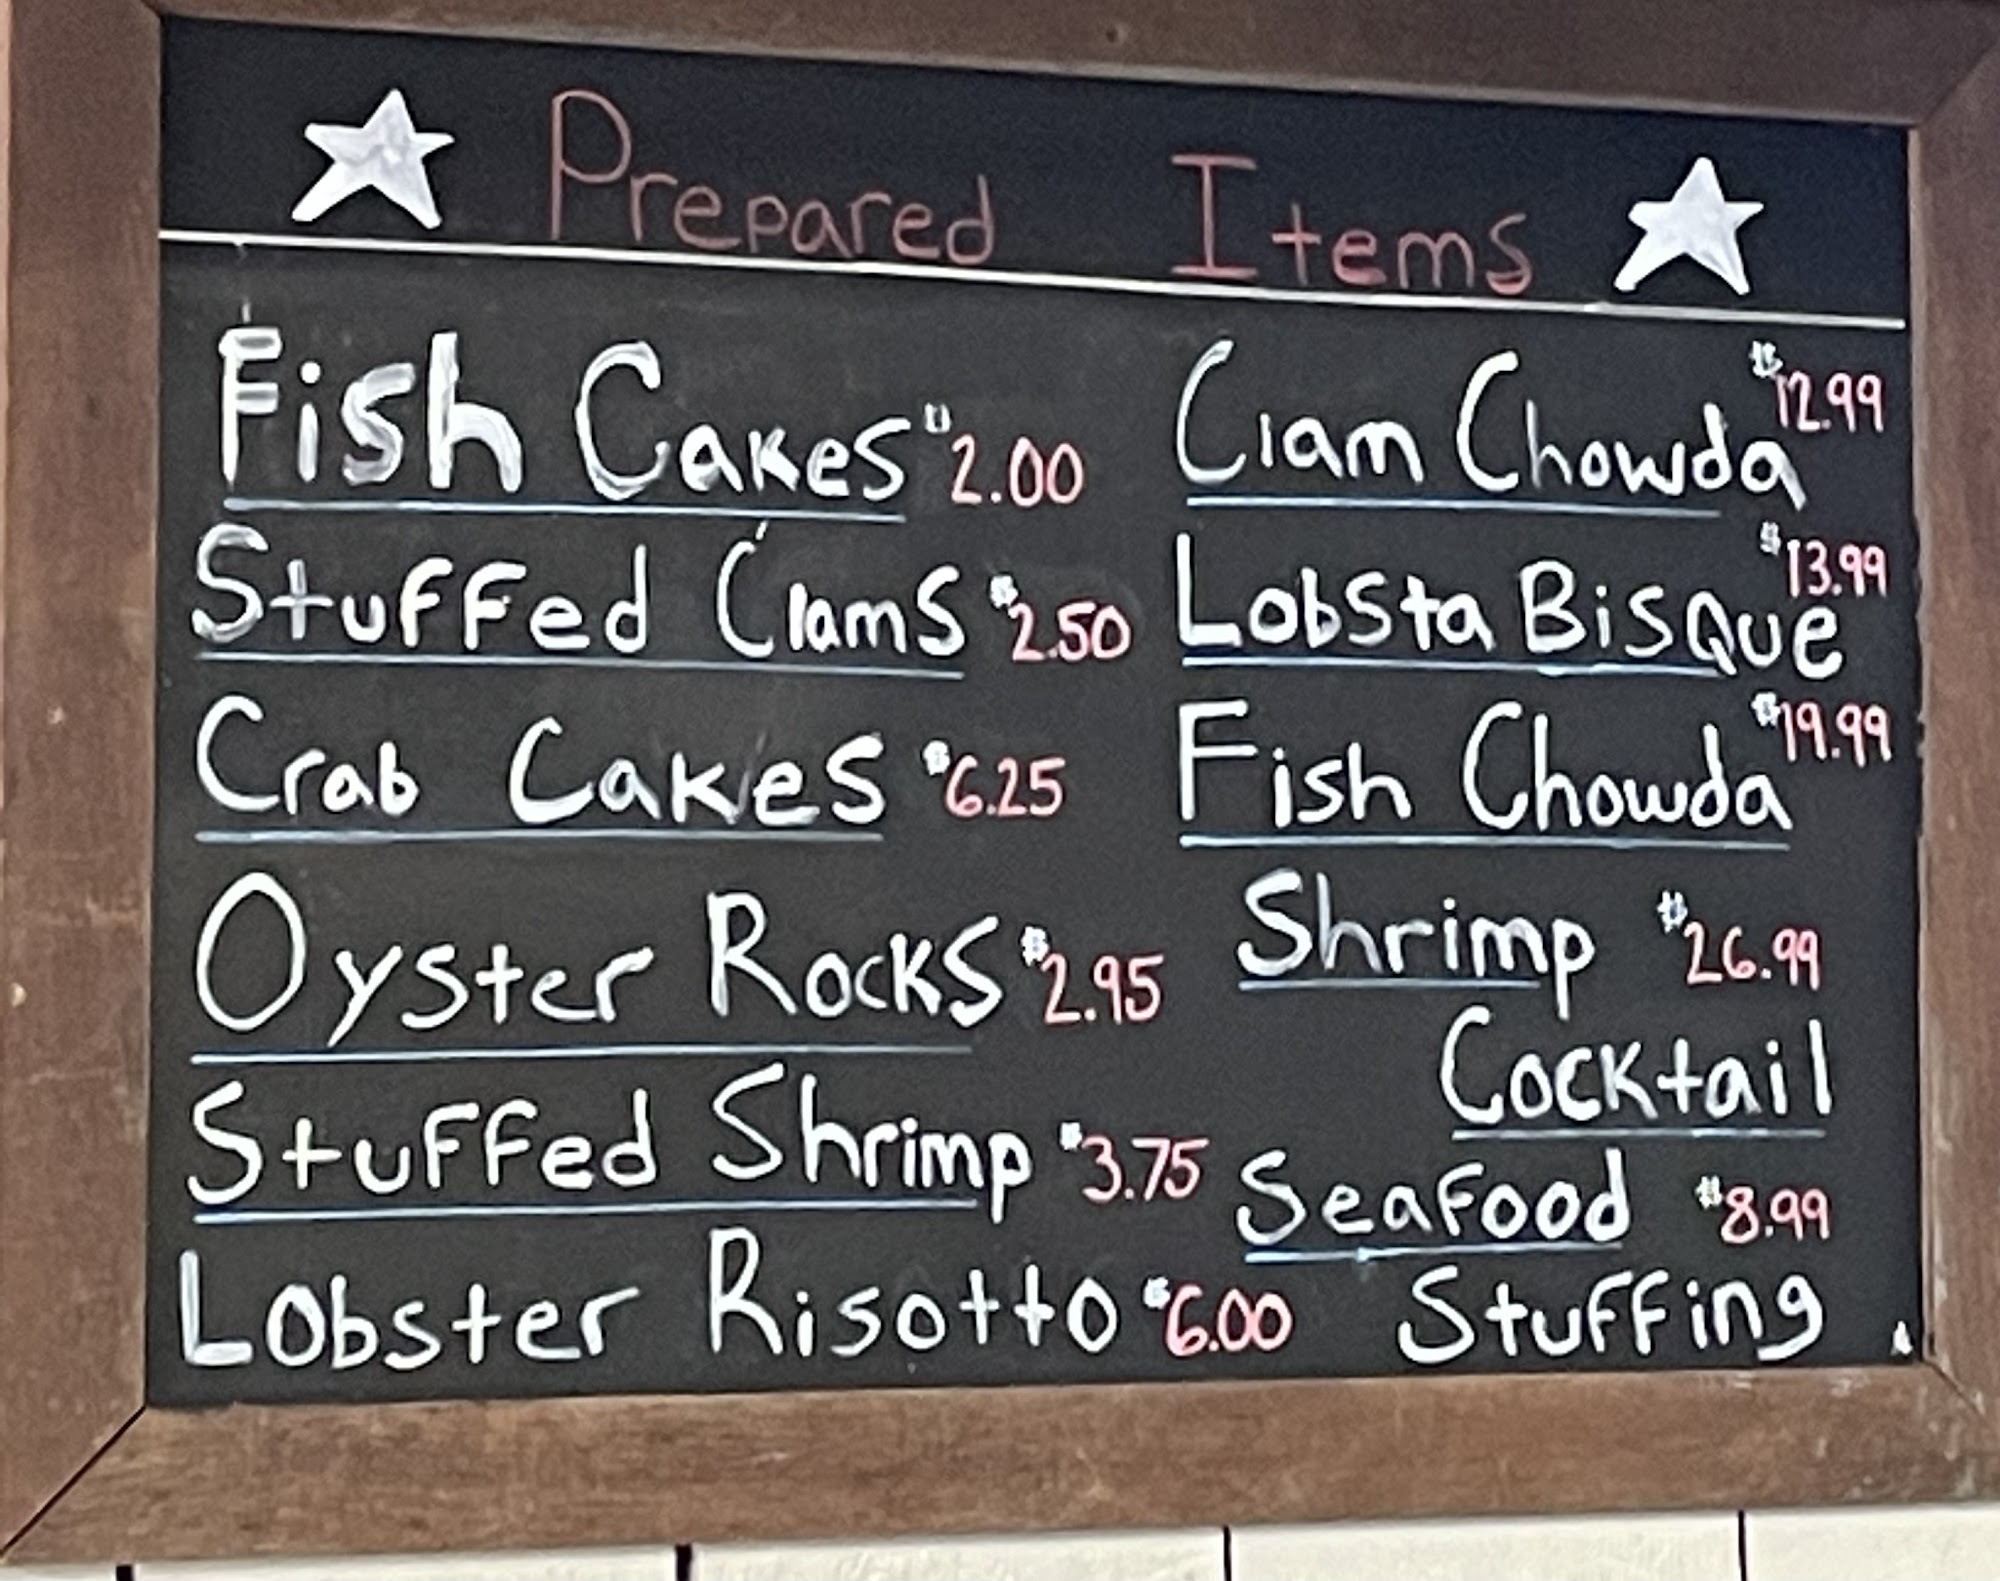 Prepared Items
Fish Cakes $2.00
Stuffed Clams $2.50
Crab Cakes $6.25
Oyster Rocks $2.95
Stuffed Shrimp $3.75
Lobster Risotto $6.00
Clam Chowda $12.99
Lobsta Bisque $13.99
Fish Chowda $19.99
Shrimp $26.99
Cocktail
Seafood $8.99
Stuffing